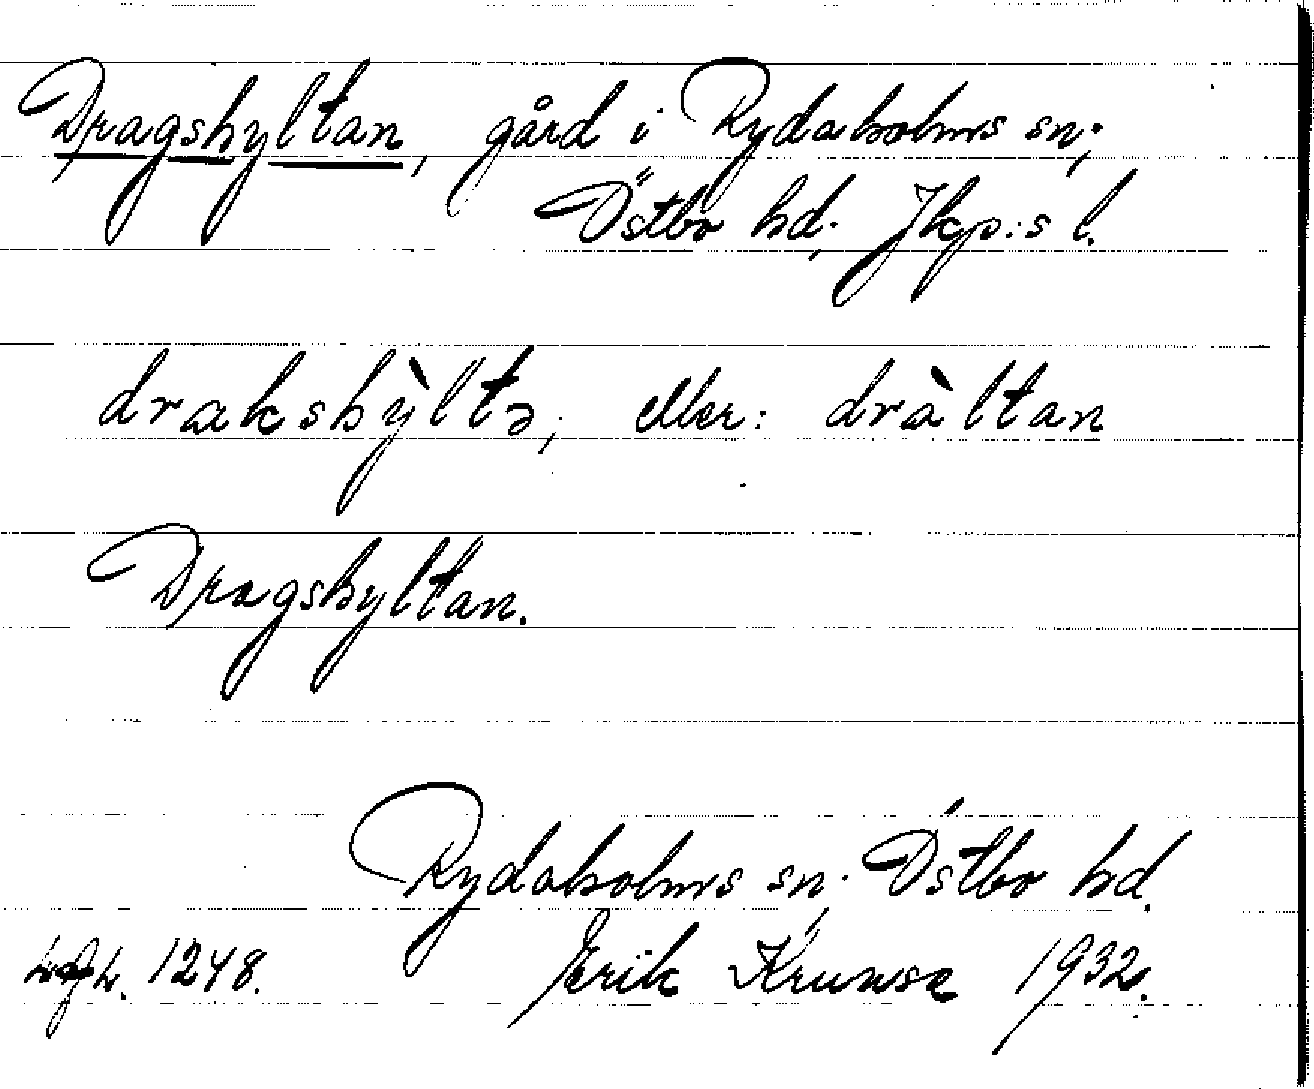 Dragshyltan, gård i Rydaholms sn;
Östbo hd; Jkp:s l.
drakshỳltə; eller: dràltan
Dragshyltan.
Rydaholms sn. Östbo hd.
1248. Erik 1932.